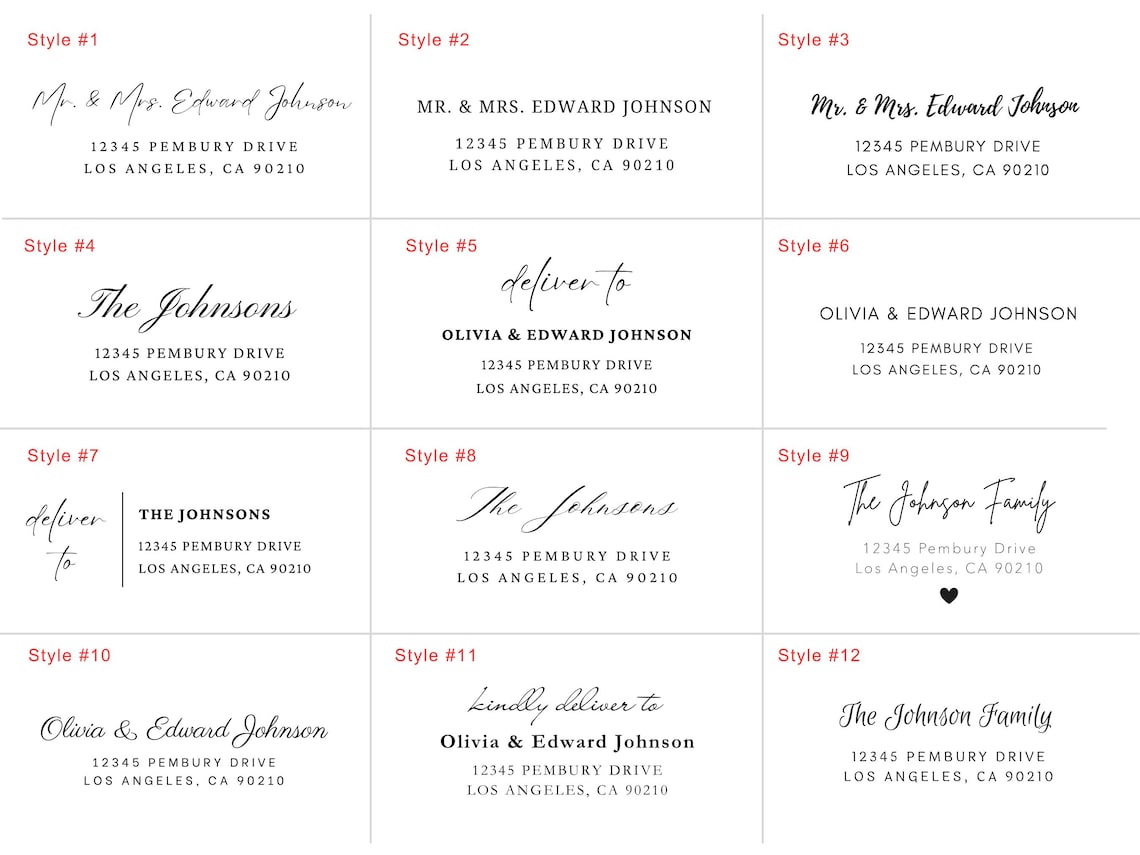 Style #1
Mr. & Mrs. Edward Johnson
12345 PEMBURY DRIVE
LOS ANGELES, CA 90210
Style #2
MR. & MRS. EDWARD JOHNSON
12345 PEMBURY DRIVE
LOS ANGELES, CA 90210
Style #3
Mr. & Mrs. Edward Johnson
12345 PEMBURY DRIVE
LOS ANGELES, CA 90210
Style #4
The Johnsons
12345 PEMBURY DRIVE
LOS ANGELES, CA 90210
Style #5
deliver to
OLIVIA & EDWARD JOHNSON
12345 PEMBURY DRIVE
LOS ANGELES, CA 90210
Style #6
OLIVIA & EDWARD JOHNSON
12345 PEMBURY DRIVE
LOS ANGELES, CA 90210
Style #7
deliver
to
THE JOHNSONS
12345 PEMBURY DRIVE
LOS ANGELES, CA 90210
Style #8
The Johnsons
12345 PEMBURY DRIVE
LOS ANGELES, CA 90210
Style #9
The Johnson Family
12345 Pembury Drive
Los Angeles, CA 90210
Style #10
Olivia & Edward Johnson
12345 PEMBURY DRIVE
LOS ANGELES, CA 90210
Style #11
kindly deliver to
Olivia & Edward Johnson
12345 PEMBURY DRIVE
LOS ANGELES, CA 90210
Style #12
The Johnson Family
12345 PEMBURY DRIVE
LOS ANGELES, CA 90210